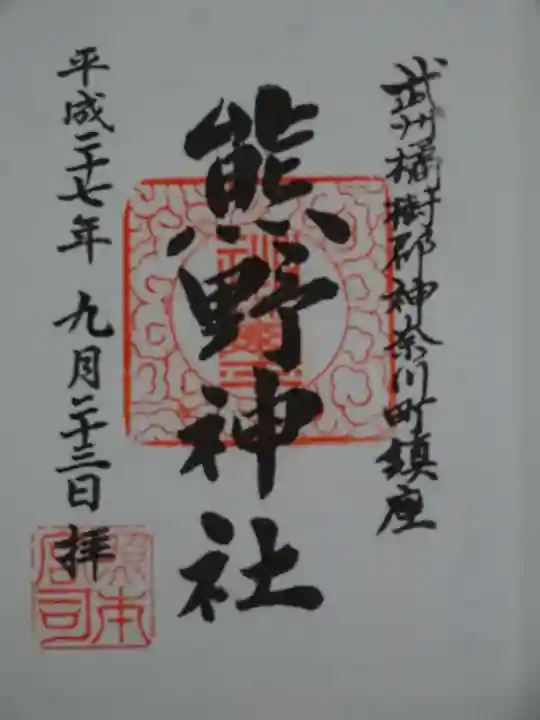 武州橘樹郡神奈川町鎮座
熊野神社
平成二十七年 九月二十三日 拝
宮司